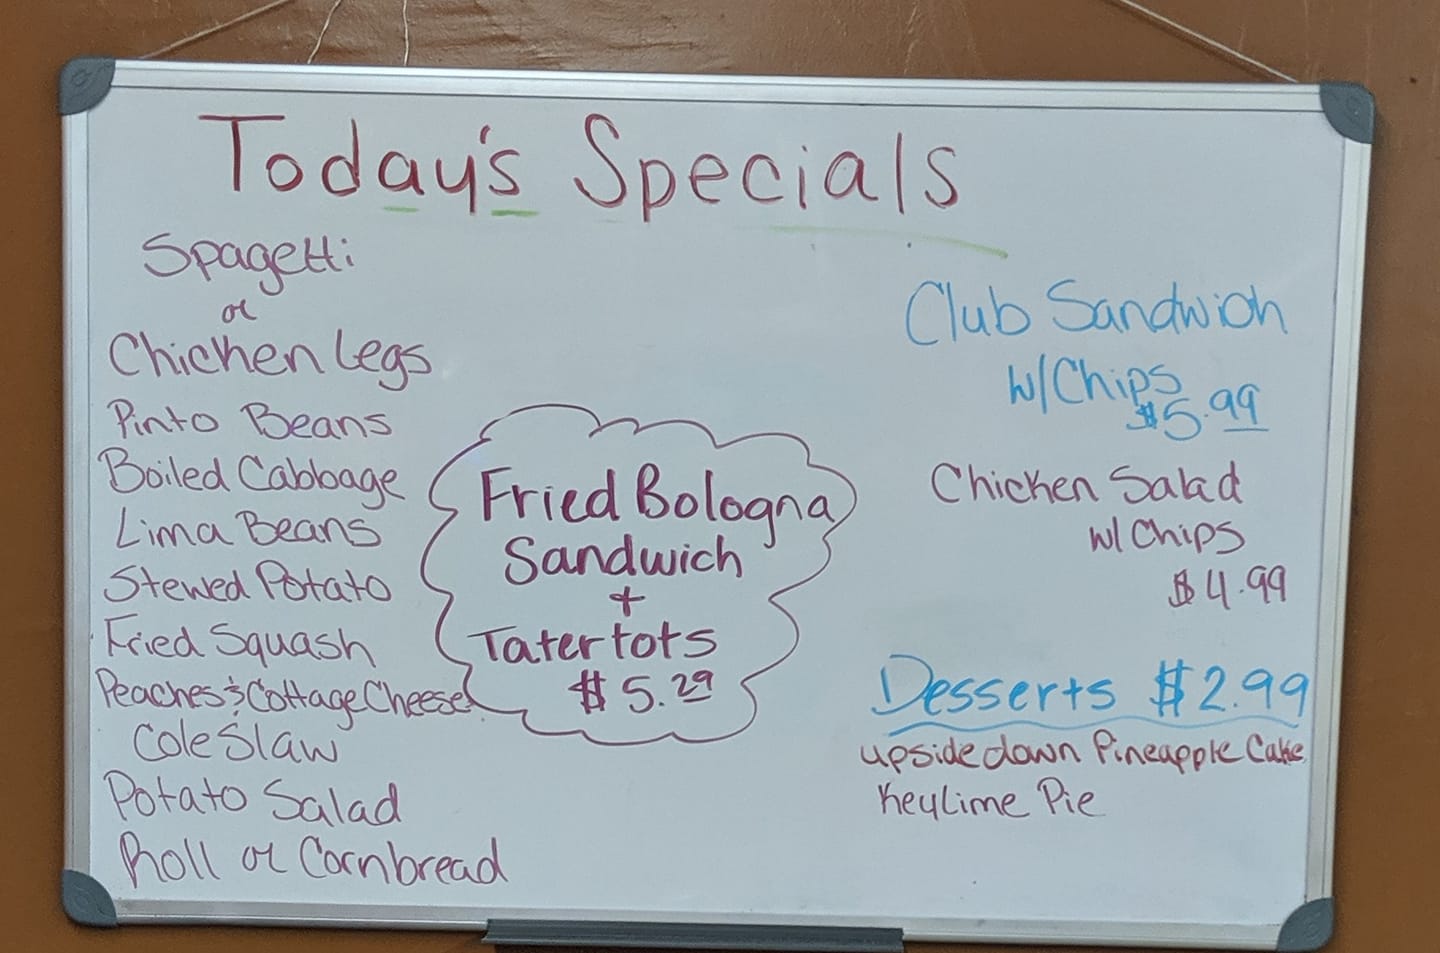 Today's Specials
Spagetti
or
Chicken Legs
Pinto Beans
Boiled Cabbage
Lima Beans
Stewed Potato
Fried Squash
Peaches & Cottage Cheese
Cole Slaw
Potato Salad
Roll or Cornbread
Fried Bologna
Sandwich
+
Tater tots
$5.29
Club Sandwich
w/Chips
$5.99
Chicken Salad
w/ Chips
$4.99
Desserts $2.99
upside down Pineapple Cake
Key Lime Pie